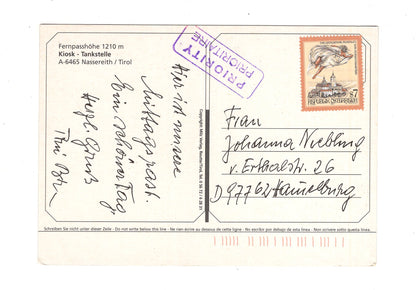 Fernpasshöhe 1210 m
Kiosk - Tankstelle
A-6465 Nassereith / Tirol
PRIORITY
PRIORITAIRE
Hier ist unsere
Mittagsrast.
Ein schöner Tag,
Herzl. Grüße
REPUBLIK ÖSTERREICH
S7
Frau
Johanna Niebling
v. Erthalstr. 26
D 97762 Hammelburg
Schreiben Sie nicht unter dieser Zeile - Do not write below this line - Ne rien écrire au dessous de cette ligne - No escribir por debajo de esta línea - Non scrivere sotto questa linea